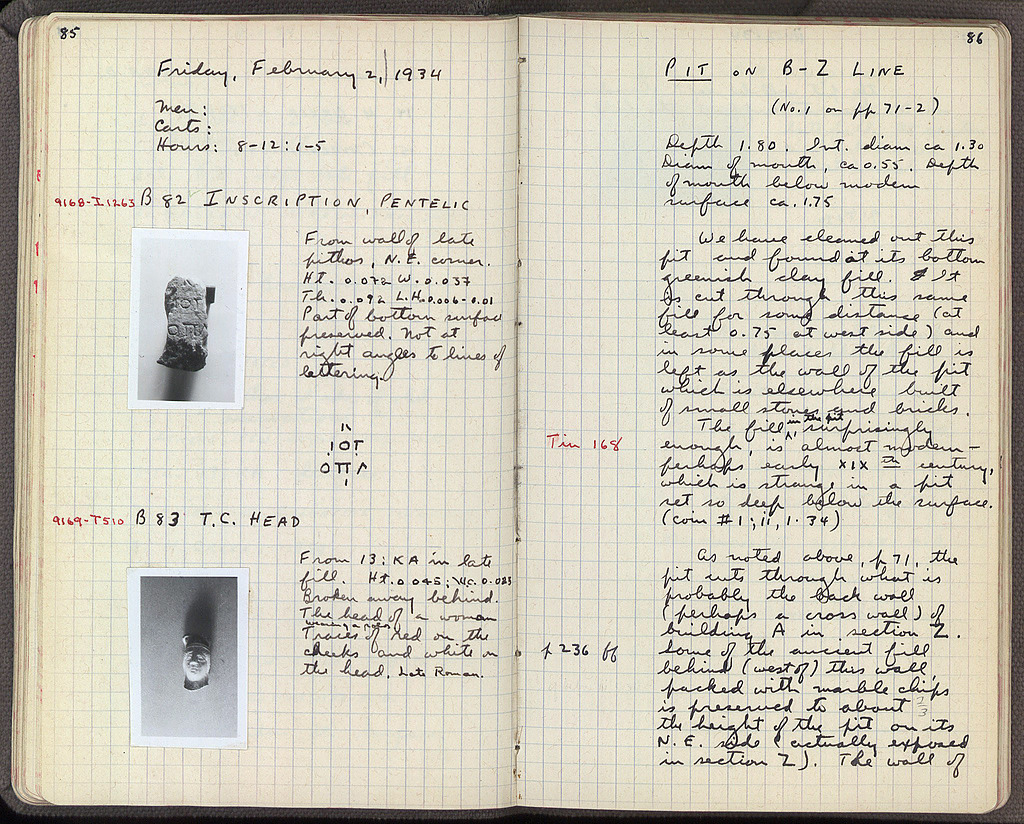 85
Friday, February 2, 1934
Men:
Carts:
Hours: 8-12: 1-5
9168-I1263 B 82 INSCRIPTION, PENTELIC
From wall of late
pithos, N.E. corner.
Ht. 0.072 W. 0.037
Th. 0.092 L.H. 0.006-0.01
Part of bottom surface
preserved. Not at
right angles to lines of
lettering.
ΙΟΤ
ΟΠ
9169-T510 B 83 T.C. HEAD
From 13:KA in late
fill. Ht. 0.045; W. 0.023
Broken away behind.
The head of a woman
wearing a
Traces of red on the
cheeks and white on
the head. Late Roman.
86
PIT ON B-Z LINE
(No. 1 on pp 71-2)
Depth 1.80. Int. diam ca 1.30
Diam of mouth, ca 0.55. Depth
of mouth below modern
surface ca. 1.75
We have cleaned out this
pit and found at its bottom
greenish clay fill. It
is cut through this same
fill for some distance (at
least 0.75 at west side) and
in some places the fill is
left as the wall of the pit
which is elsewhere built
of small stones and bricks.
The fill in the pit surprisingly
Tin 168
enough, is almost modern -
perhaps early XIX th century,
which is strange in a pit
set so deep below the surface.
(coin #1; ii, 1. 34)
As noted above, p 71, the
pit cuts through what is
probably the back wall
(perhaps a cross wall) of
building A in section Z.
p 236 ff
Some of the ancient fill
behind (west of) this wall,
packed with marble chips
is preserved to about 2/3
the height of the pit on its
N.E. side (actually exposed
in section Z). The wall of